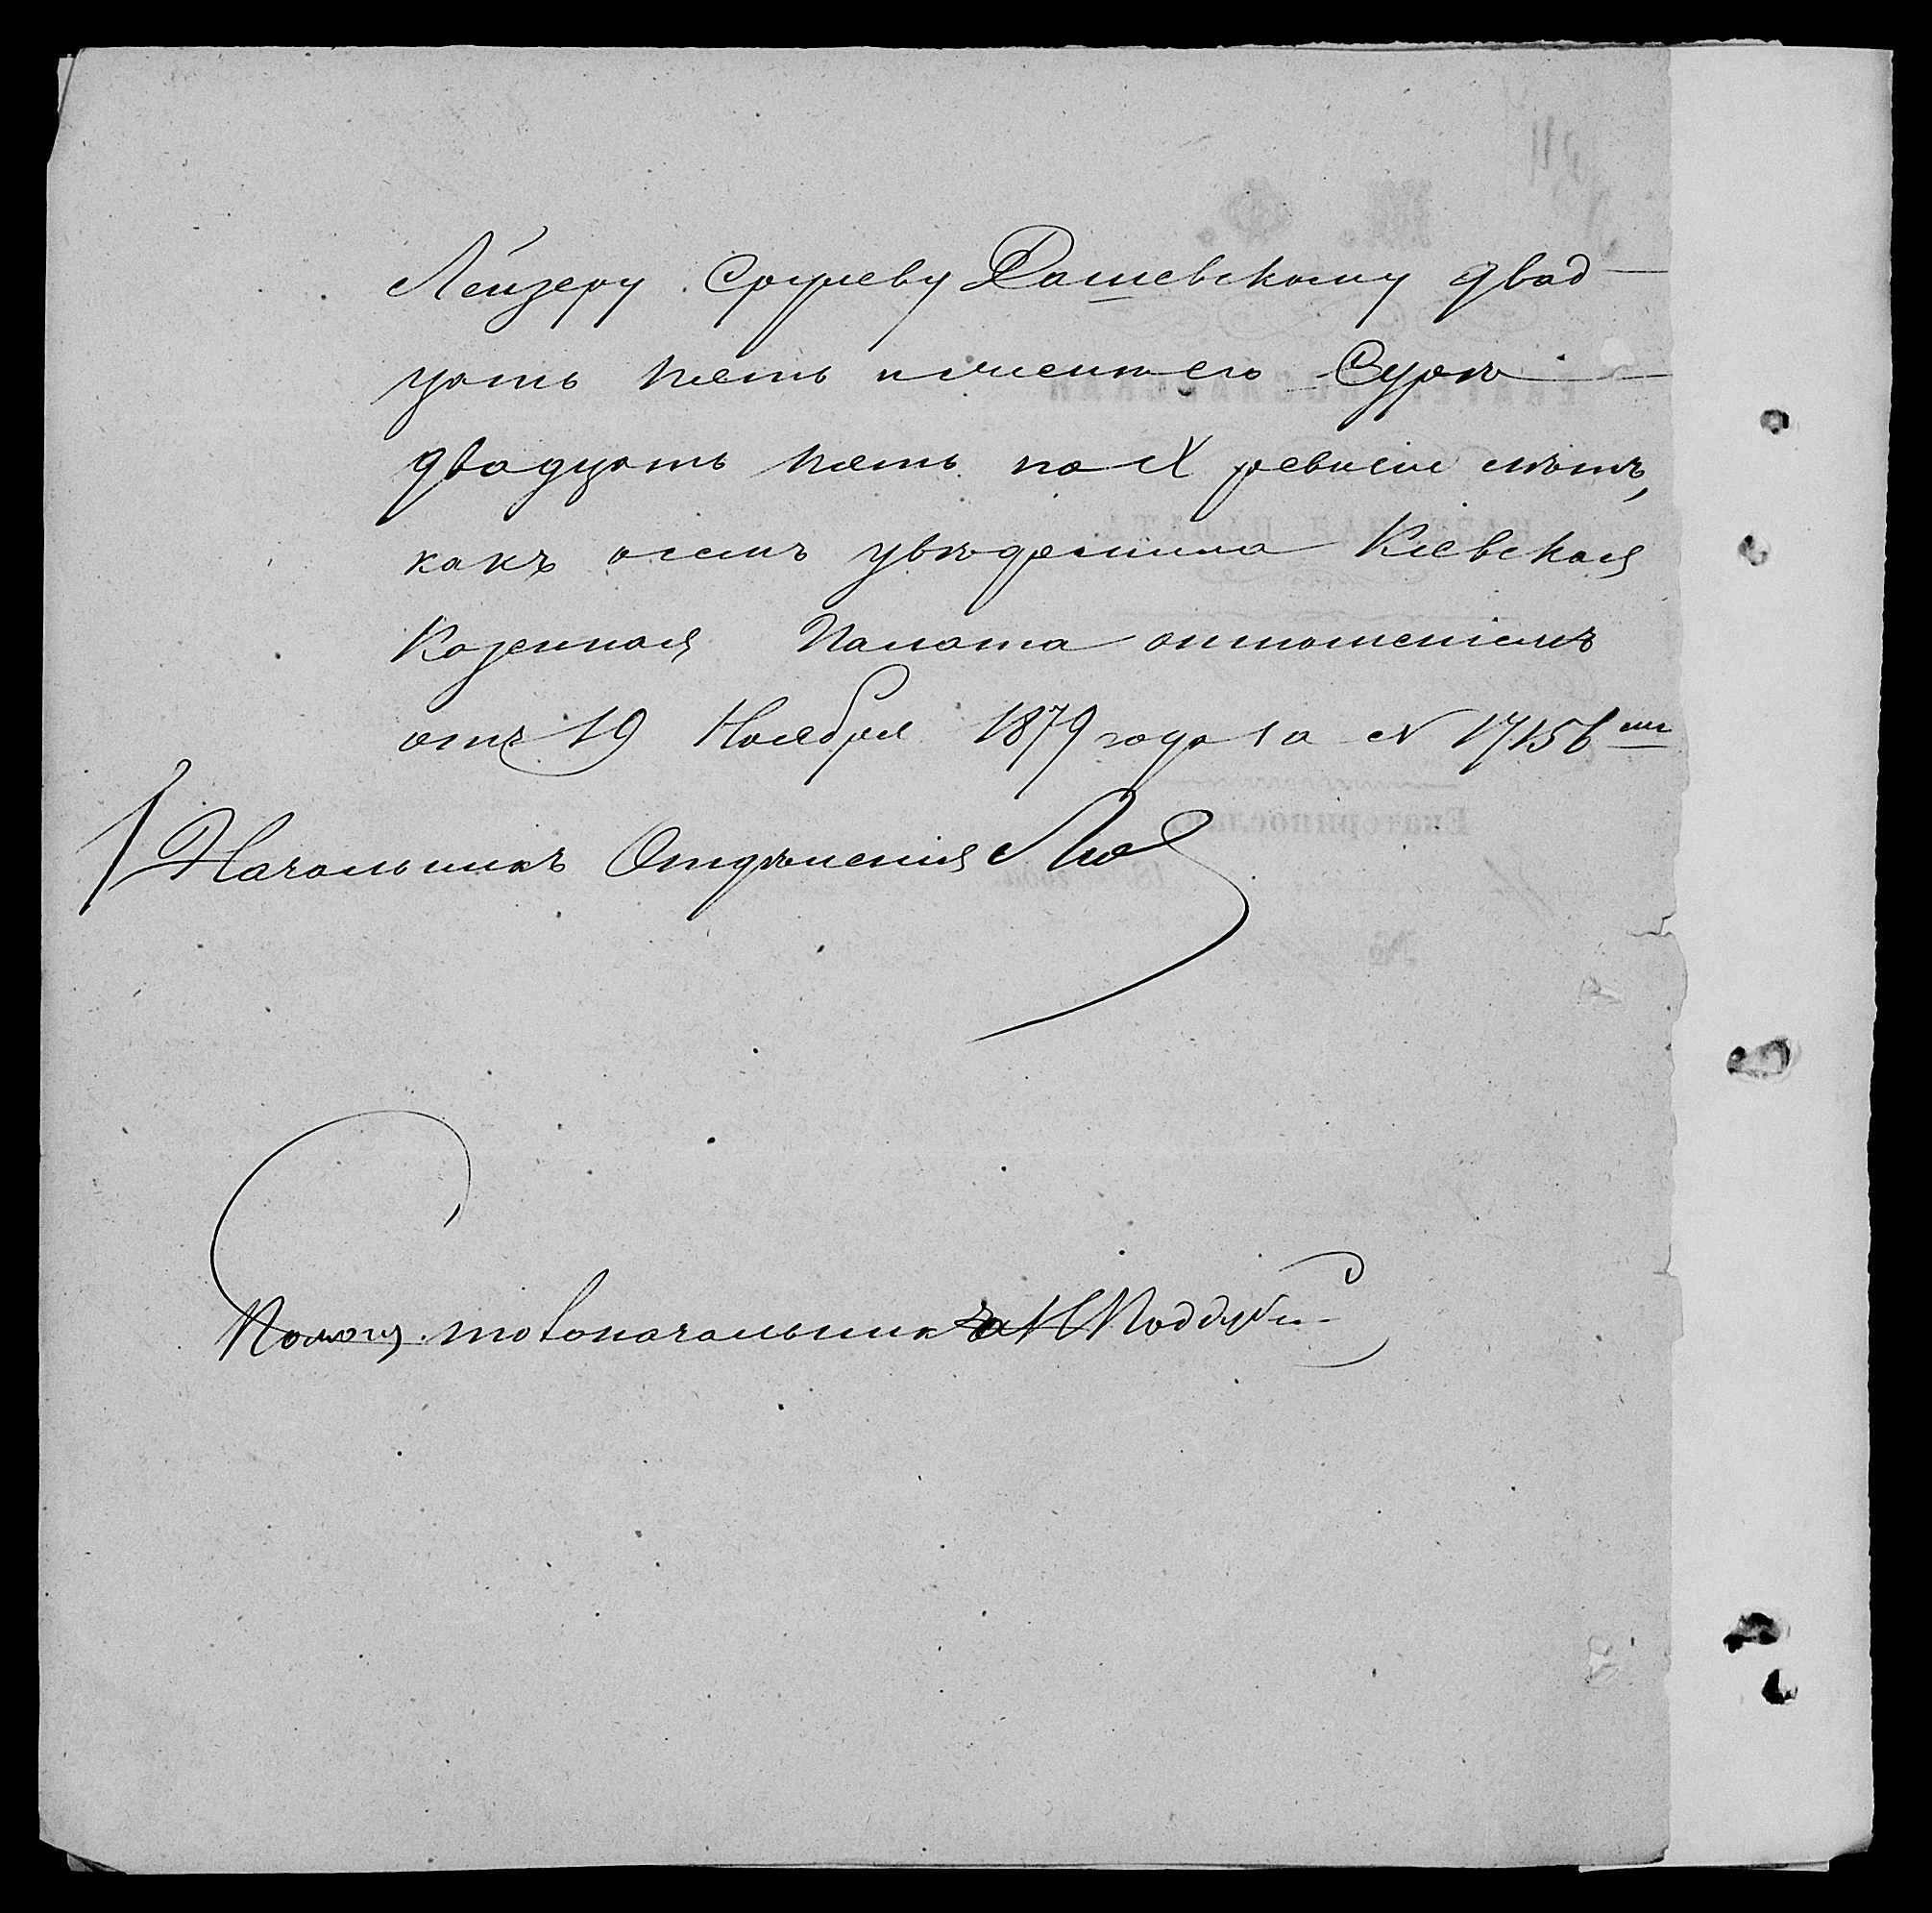 Лейзеру Срулеву Дашевскому двад
цать пять и женѣ его Сурѣ
двадцать пять по X ревизіи лѣтъ,
какъ о семъ увѣдомила Кіевская
Казенная Палата отношеніемъ
отъ 19 Ноября 1879 года за № 17156
Начальникъ Отдѣленія
Помощ. столоначальника